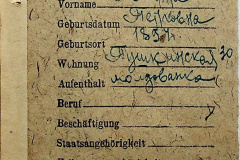 Vorname
Петровна
Geburtsdatum 1897.
Geburtsort
Wohnung Пушкинская 30
Aufenthalt молдованка
Beruf
Beschäftigung
Staatsangehörigkeit